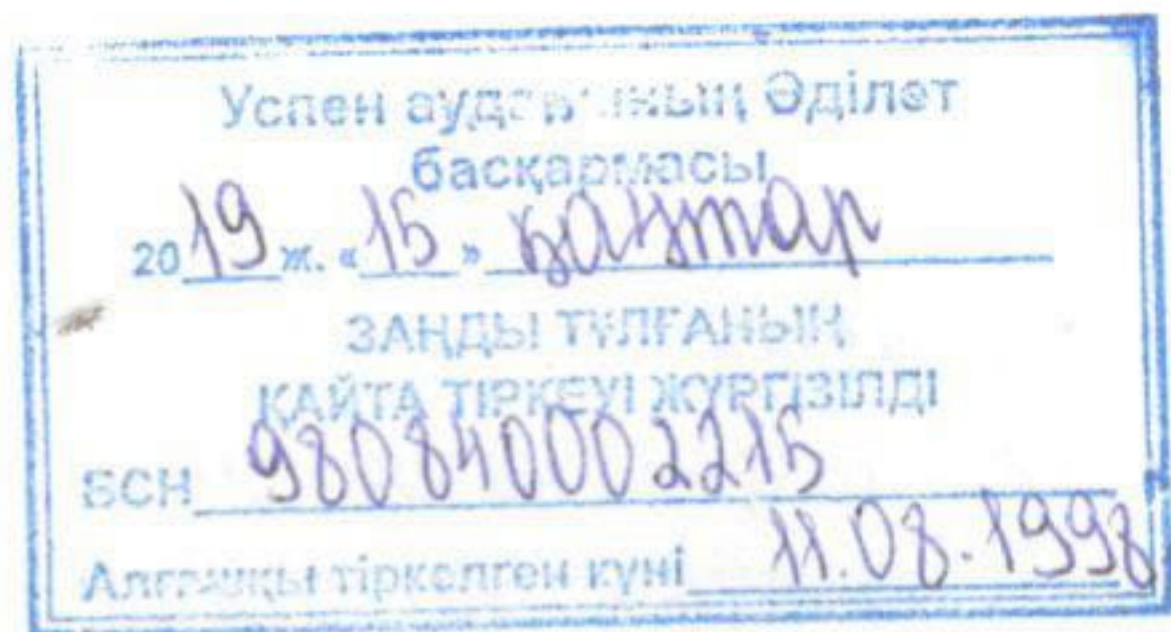 Успен ауданының Әділет
басқармасы
2019 ж. «15» қаңтар
ЗАҢДЫ ТҰЛҒАНЫҢ
ҚАЙТА ТІРКЕУІ ЖҮРГІЗІЛДІ
БСН 980840002215
Алғашқы тіркелген күні 11.08.1998